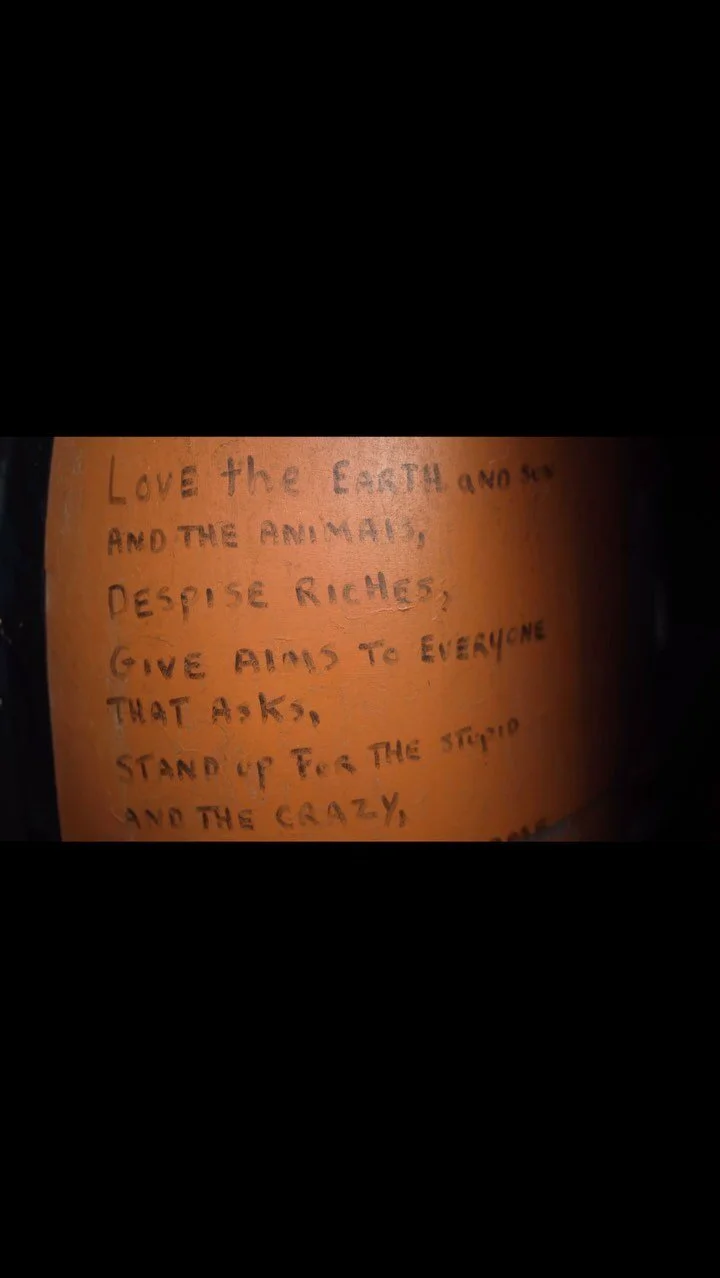 LOVE the EARTH AND SUN
AND THE ANIMALS,
DESPISE RICHES,
GIVE ALMS TO EVERYONE
THAT ASKS,
STAND UP FOR THE STUPID
AND THE CRAZY,